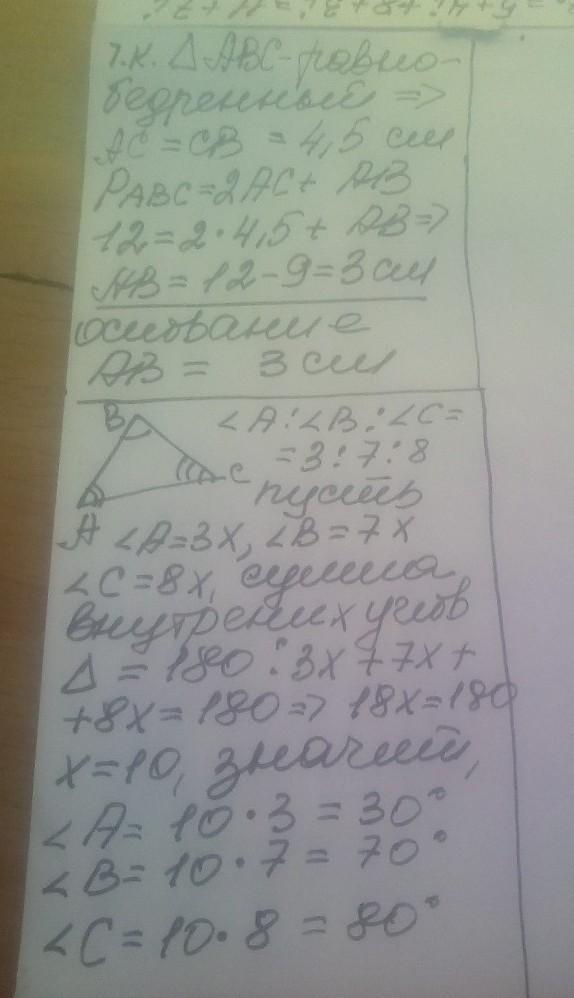 т.к. △ABC-равно-
бедренный =>
AC = CB = 4,5 см
PABC=2AC+ AB
12=2·4,5+ AB=>
AB=12-9=3см
основание
AB = 3 см
B
∠A:∠B:∠C=
=3:7:8
C
пусть
A ∠A=3x, ∠B=7x
∠C=8x, сумма
внутрених углов
△ = 180:3x+7x+
+8x=180=> 18x=180
x=10, значит,
∠A= 10·3 = 30°
∠B= 10·7 = 70°
∠C=10·8 = 80°